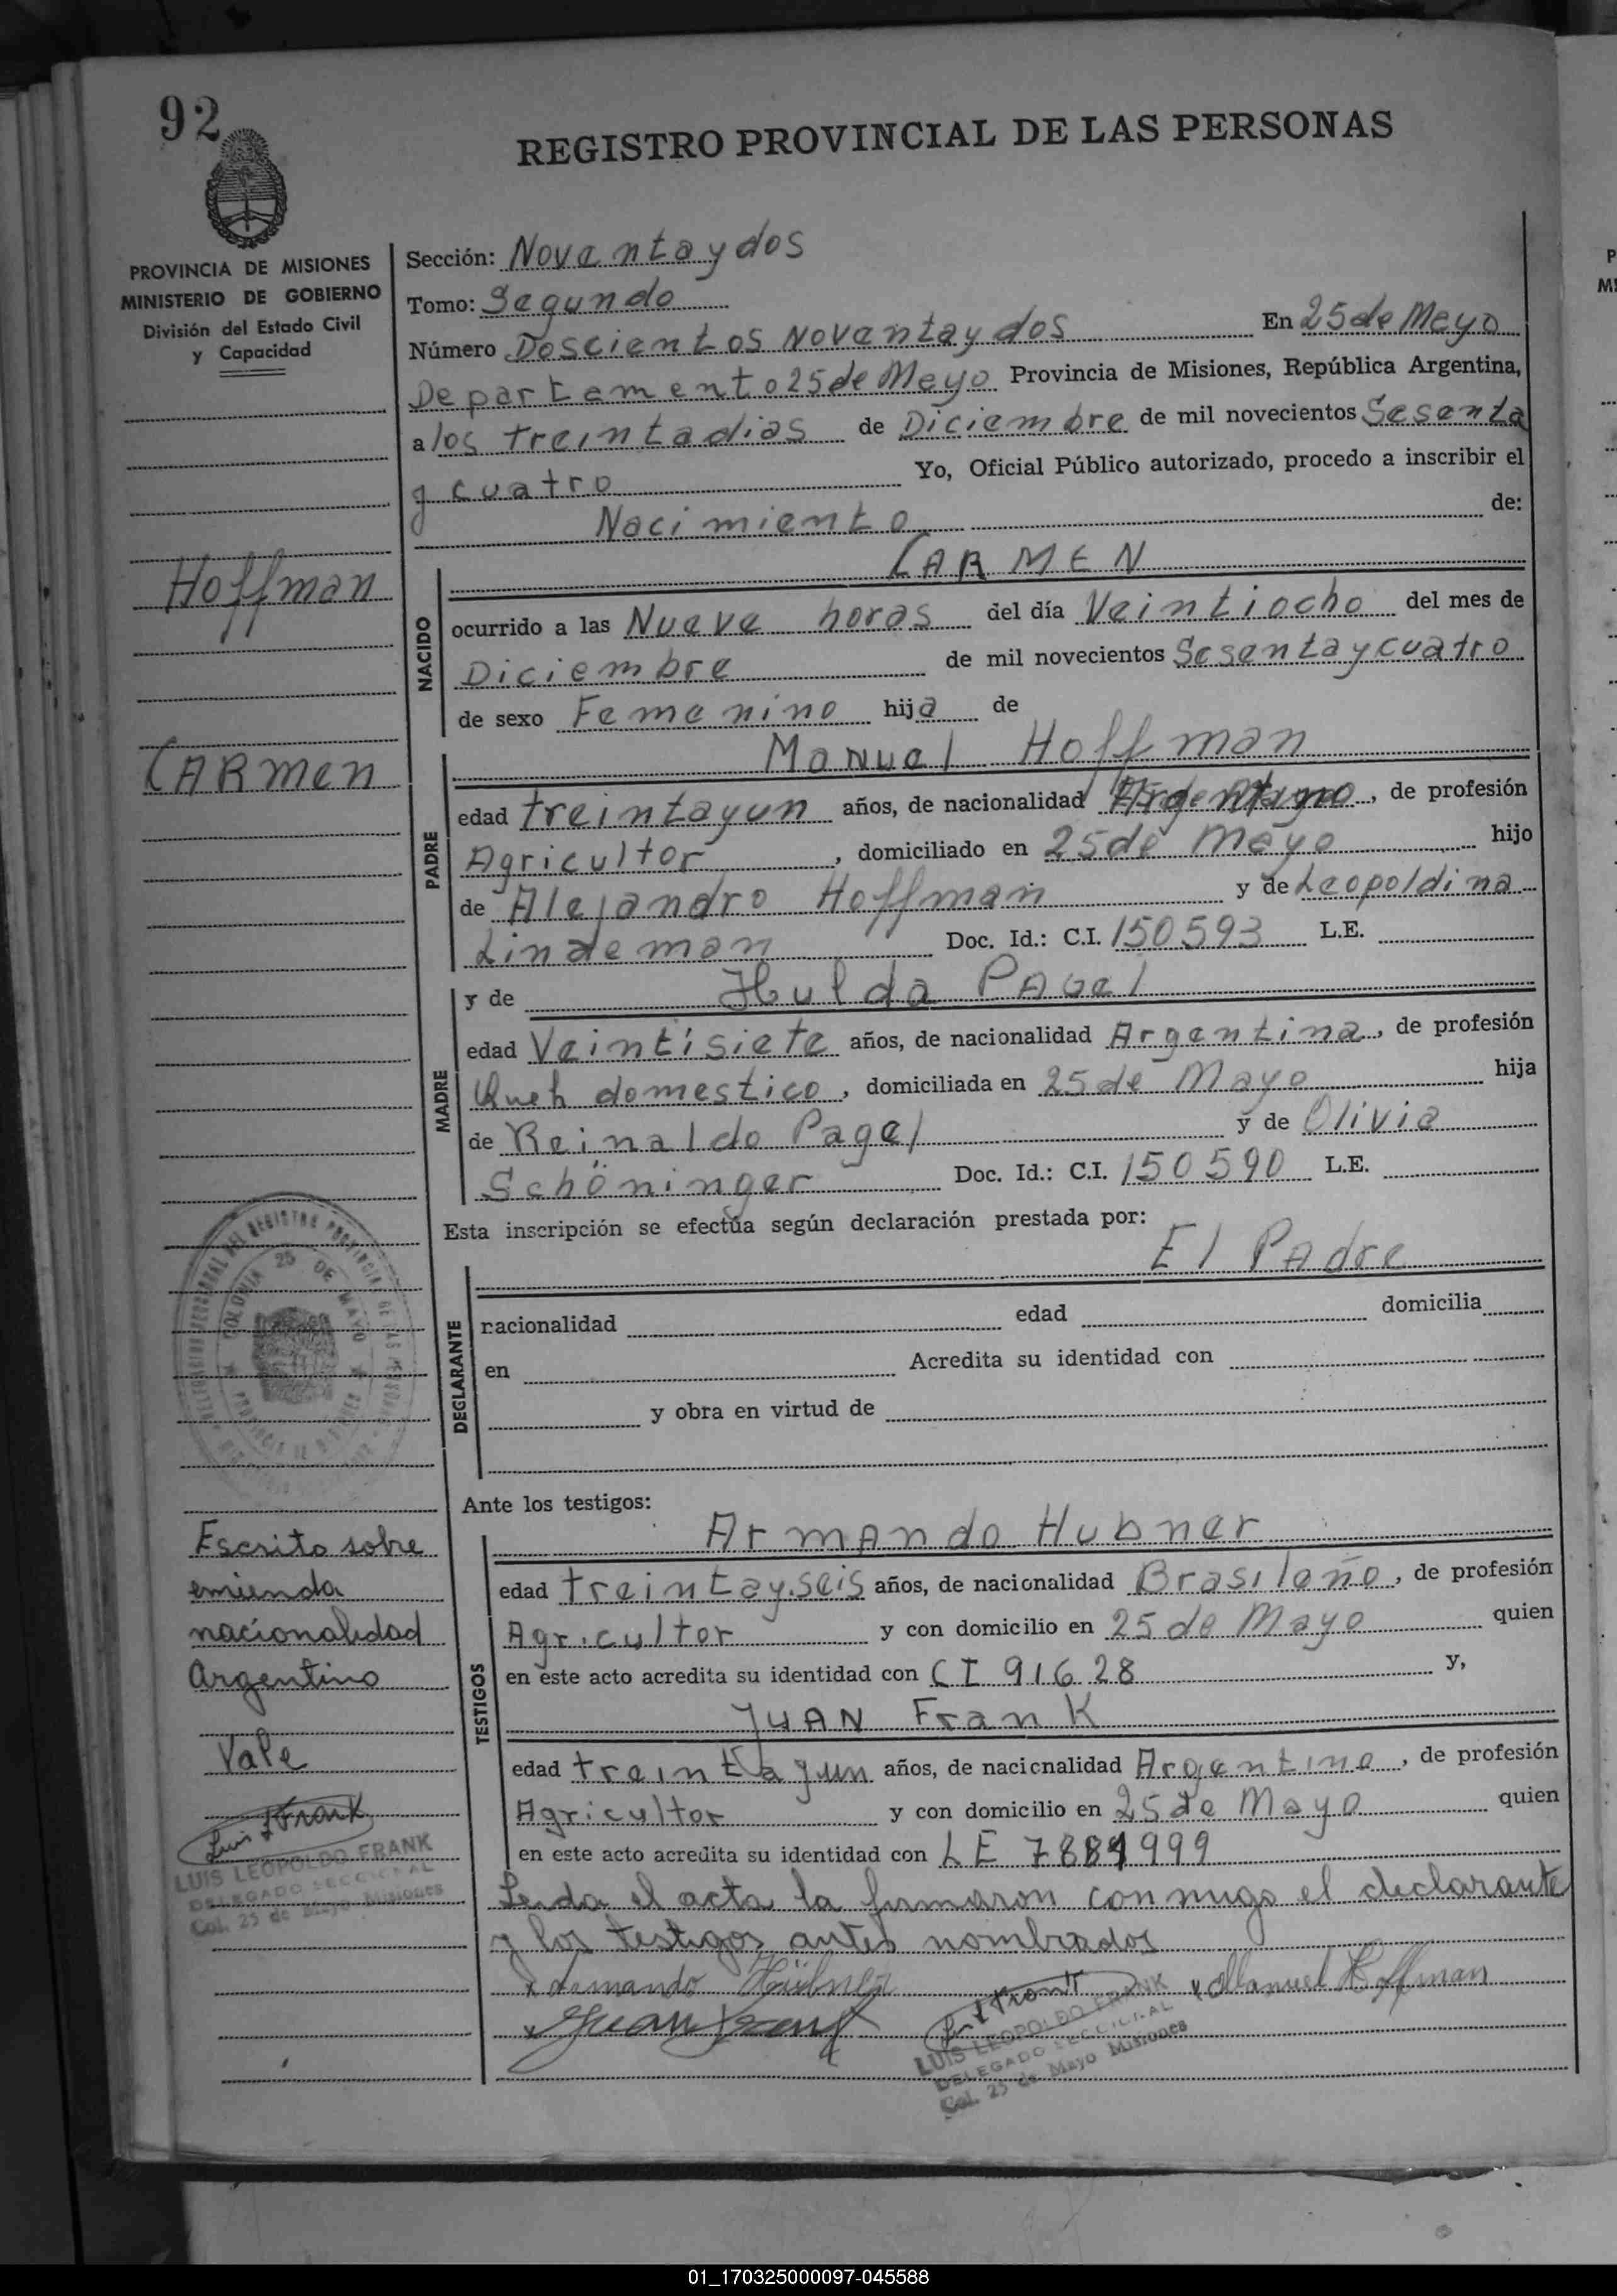 92
REGISTRO PROVINCIAL DE LAS PERSONAS
PROVINCIA DE MISIONES
MINISTERIO DE GOBIERNO
División del Estado Civil
y Capacidad
Hoffman
CARMEN
Sección: Noventa y dos
Tomo: Segundo
Número Doscientos Noventa y dos En 25 de Mayo
Departamento 25 de Mayo Provincia de Misiones, República Argentina,
a los treinta dias de Diciembre de mil novecientos Sesenta
y cuatro Yo, Oficial Público autorizado, procedo a inscribir el
Nacimiento de:
NACIDO
CARMEN
ocurrido a las Nueve horas del día Veintiocho del mes de
Diciembre de mil novecientos Sesenta y cuatro
de sexo Femenino hija de
PADRE
Manuel Hoffman
edad treinta y un años, de nacionalidad Argentino, de profesión
Agricultor, domiciliado en 25 de Mayo hijo
de Alejandro Hoffman y de Leopoldina
Lindeman Doc. Id.: C.I. 150593 L.E.
MADRE
y de Hulda PAGel
edad Veintisiete años, de nacionalidad Argentina, de profesión
Queh domestico, domiciliada en 25 de Mayo hija
de Reinaldo Pagel y de Olivia
Schöninger Doc. Id.: C.I. 150590 L.E.
Esta inscripción se efectúa según declaración prestada por:
El Padre
DECLARANTE
nacionalidad edad domicilia
en Acredita su identidad con
y obra en virtud de
Ante los testigos:
TESTIGOS
Armando Hubner
edad treinta y seis años, de nacionalidad Brasileño, de profesión
Agricultor y con domicilio en 25 de Mayo quien
en este acto acredita su identidad con CI 91628 y,
JUAN Frank
edad treinta y un años, de nacionalidad Argentino, de profesión
Agricultor y con domicilio en 25 de Mayo quien
en este acto acredita su identidad con LE 7884999
Leida el acta la firmaron conmigo el declarante
y los testigos antes nombrados
x Armando Hübner
x Manuel Hoffman
x Juan Frank
L Frank
LUIS LEOPOLDO FRANK
DELEGADO SECCIONAL
Col. 25 de Mayo Misiones
COLONIA 25 DE MAYO
PROVINCIA DE MISIONES
Escrito sobre
emienda
nacionalidad
Argentino
Vale
Luis L Frank
LUIS LEOPOLDO FRANK
DELEGADO SECCIONAL
Col. 25 de Mayo Misiones
01_170325000097-045588